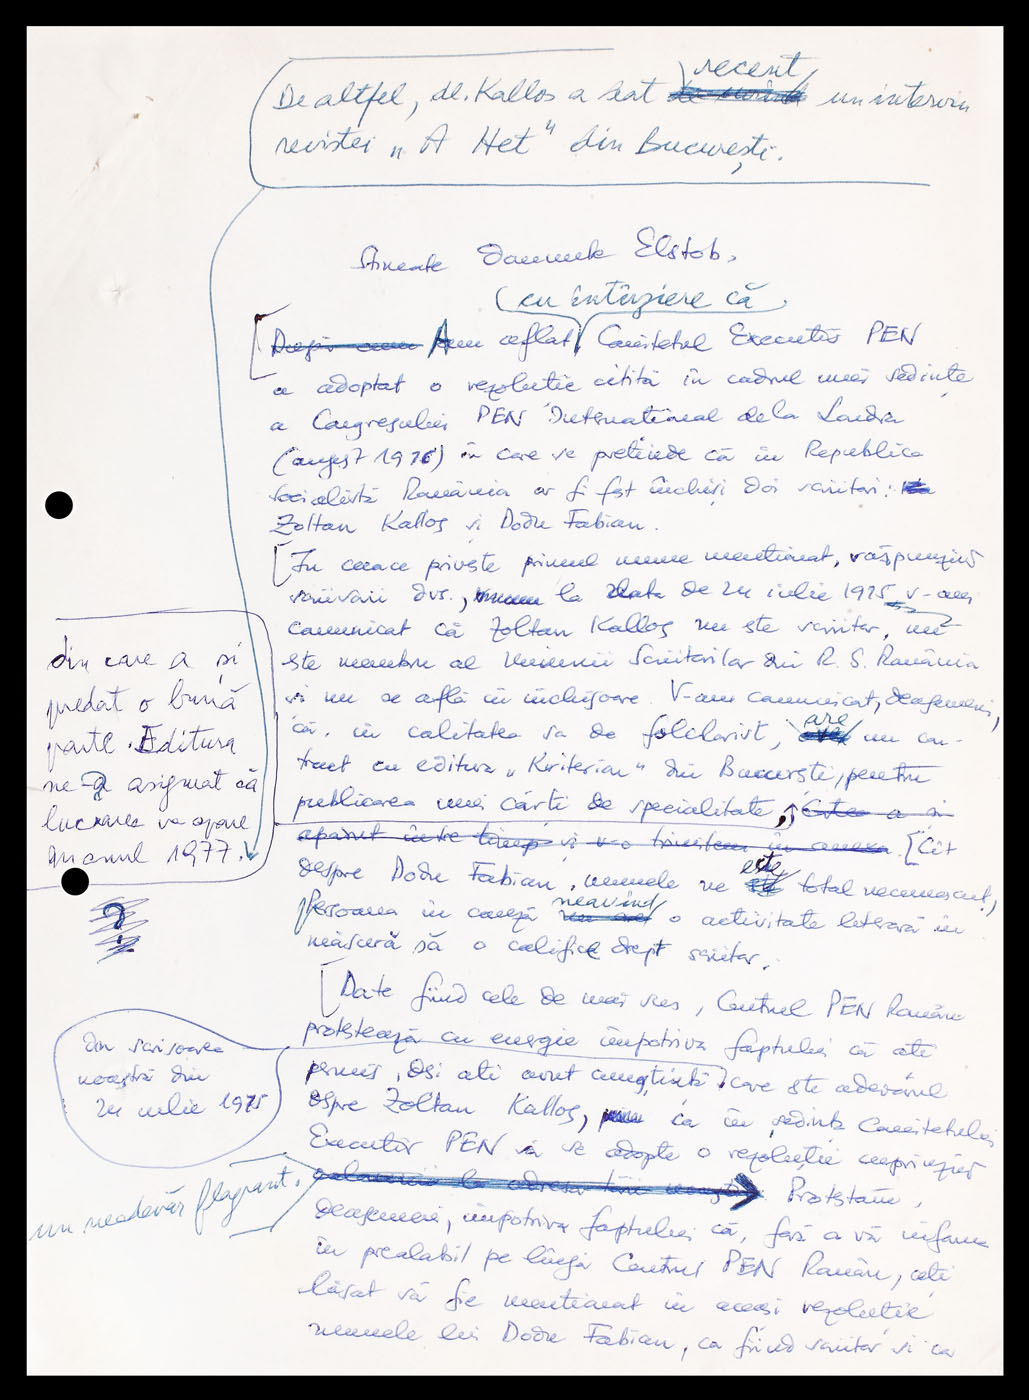 recent
De altfel, dl. Kallos a dat un interviu
revistei „A Het" din București.
Stimate Domnule Elstob,
cu întîrziere că
După cum Am aflat Comitetul Executiv PEN
a adoptat o rezoluție citită în cadrul unei ședințe
a Congresului PEN Internațional de la Londra
(august 1976) în care se pretinde că în Republica
Socialistă România ar fi fost închiși doi scriitori:
Zoltan Kallos și Dodu Fabian.
În ceea ce privește primul nume menționat, răspunzînd
scrisorii dvs., la data de 24 iulie 1975 v-am
comunicat că Zoltan Kallos nu este scriitor, nu
este membru al Uniunii Scriitorilor din R. S. România
și nu se află în închisoare. V-am comunicat, deasemeni,
că, în calitatea sa de folclorist, are un con-
tract cu editura „Kriterion" din București, pentru
publicarea unei cărți de specialitate, Cartea a și
apărut între timp și v-o trimitem în anexă. Cît
despre Dodu Fabian, numele ne este total necunoscut,
persoana în cauză neavînd o activitate literară în
măsură să o califice drept scriitor.
Date fiind cele de mai sus, Centrul PEN Român
protestează cu energie împotriva faptului că ați
permis, deși ați avut cunoștință care este adevărul
despre Zoltan Kallos, ca în ședința Comitetului
Executiv PEN să se adopte o rezoluție cuprinzînd
calomnii la adresa țării noastre Protestăm,
deasemeni, împotriva faptului că, fără a vă informa
în prealabil pe lîngă Centrul PEN Român, ați
lăsat să fie menționat în aceeași rezoluție
numele lui Dodu Fabian, ca fiind scriitor și ca
din care a și
predat o bună
parte. Editura
ne-a asigurat că
lucrarea va apare
în anul 1977.
?
din scrisoarea
noastră din
24 iulie 1975
un neadevăr flagrant.